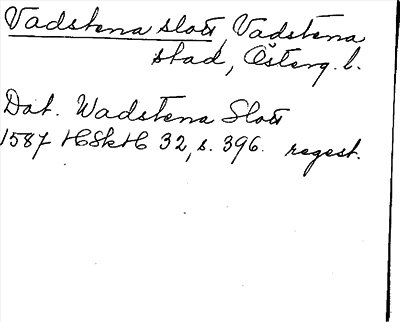 Vadstena slott, Vadstena
stad, Österg. l.
Dat. Wadstena Slott
1587 HSkH 32, s. 396. regest.